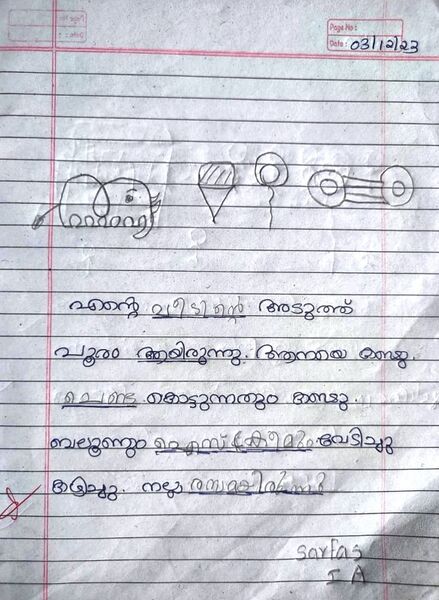 Page No:
Date: 03/12/23
എന്റെ വീടിന്റെ അടുത്ത്
പൂരം ആയിരുന്നു. ആനയെ കണ്ടു.
ചെണ്ട കൊട്ടുന്നതും കണ്ടു.
ബലൂണും ഐസ്ക്രീമും വേടിച്ചു
കളിച്ചു. നല്ല രസമായിരുന്നു
Sarfas
I A